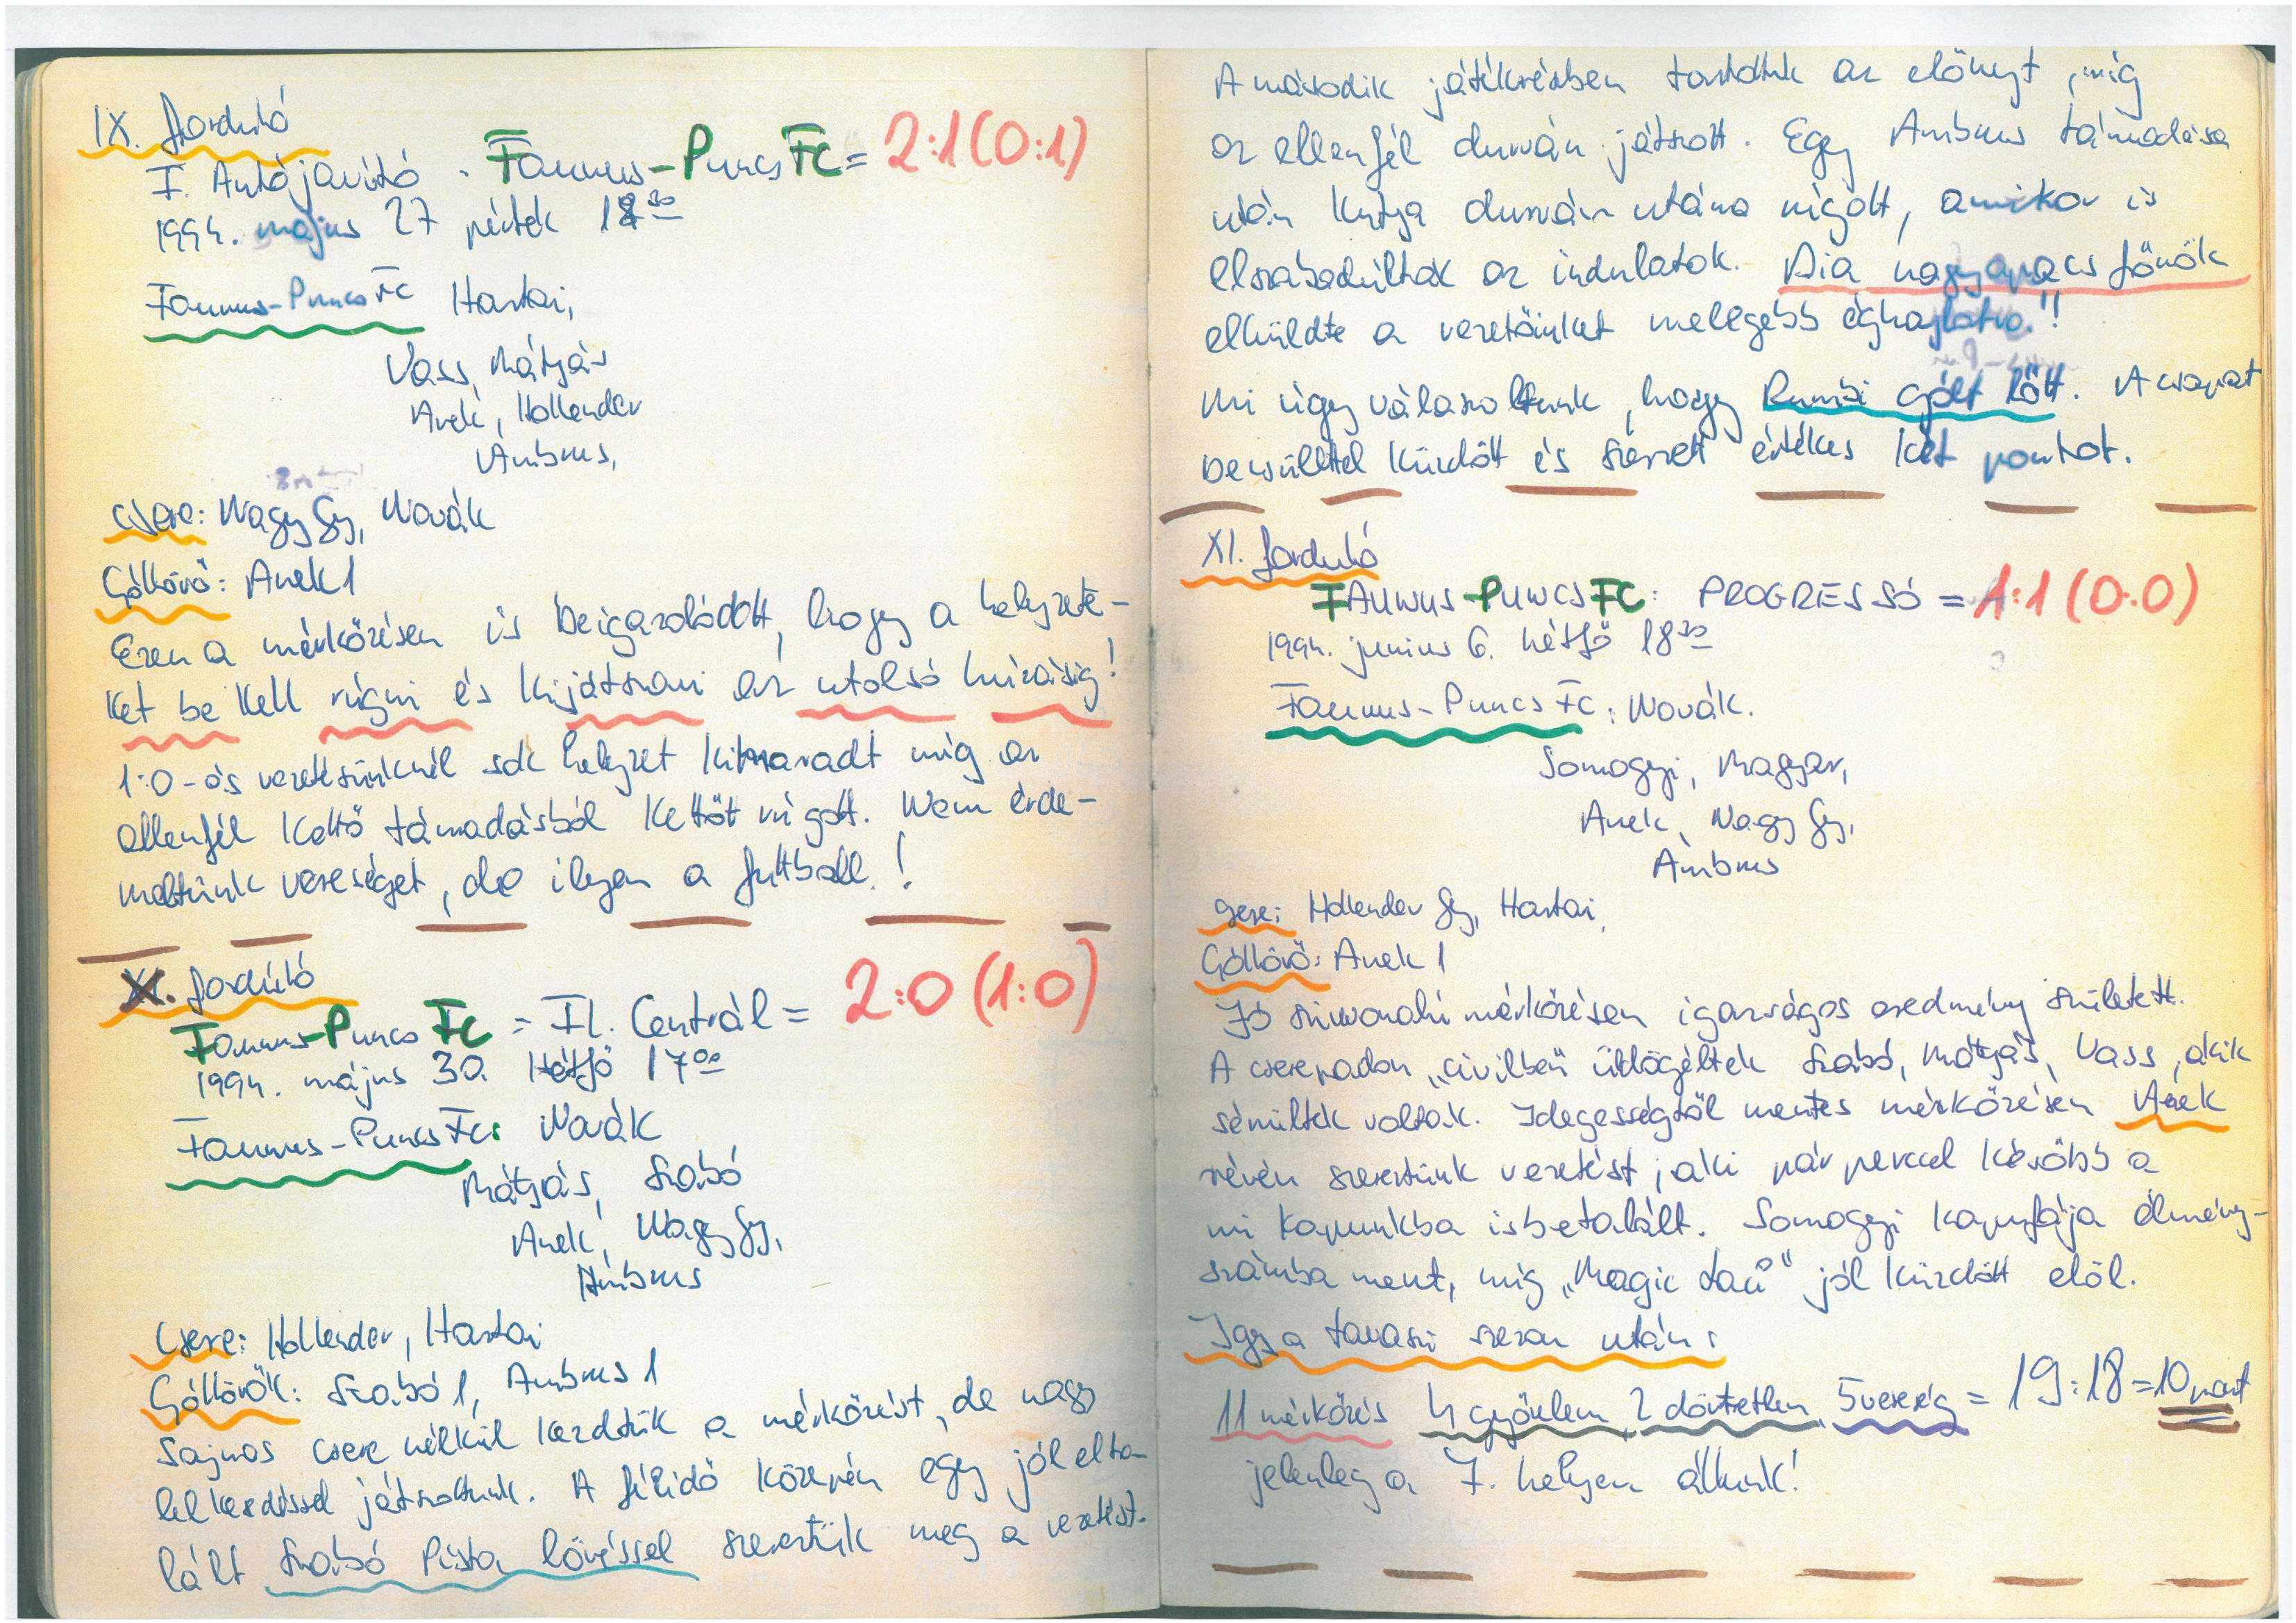 IX. forduló
I. Autójavító - Taurus-Puncs FC = 2:1 (0:1)
1994. május 27 péntek 18 30
Taurus-Puncs FC Hartai,
Vass, Mátyás
Anek, Hollender
Ambrus,
csere: Nagy Gy, Novák
Góllövő: Anek 1
Ezen a mérkőzésen is beigazolódott, hogy a helyzete-
ket be kell rúgni és kijátszani az utolsó húzásig!
1:0-ás vezetésünknél sok helyzet kimaradt míg az
ellenfél kettő támadásból kettőt rúgott. Nem érde-
meltünk vereséget, de ilyen a futtball!
X. forduló
Taurus-Puncs FC = Il. Centrál = 2:0 (1:0)
1994. május 30. Hétfő 17 00
Taurus-Puncs FC: Novák
Mátyás, Szabó
Anek, Nagy Gy,
Ambrus
Csere: Hollender, Hartai
Góllövők: Szabó 1, Ambrus 1
Sajnos csere nélkül kezdtük a mérkőzést, de nagy
lelkesedéssel játszottunk. A félidő közepén egy jól elta-
lált Szabó Pista lövéssel szereztük meg a vezetést.
A második játékrészben tartottuk az előnyt, míg
az ellenfél durván játszott. Egy Ambrus támadása
után kutya durván utána rúgott, amikor is
elszabadúltak az indulatok. Aia nagy apacs főnök
elküldte a vezetőinket melegebb éghajlatra."!
Mi úgy válaszoltunk, hogy Rumbi gólt lőtt. A csapat
becsülettel küzdött és szerzett értékes két pontot.
XI. forduló
TAURUS-PUNCS FC: PROGRESSÓ = 1:1 (0:0)
1994. junius 6. hétfő 18 30
Taurus-Puncs FC: Novák.
Somogyi, Magyar,
Anek, Nagy Gy,
Ambrus
csere: Hollender Gy, Hartai,
Góllövő: Anek 1
Jó szinvonalú mérkőzésen igazságos eredmény született.
A cserepadon „civilben" üldögéltek Szabó, Mátyás, Vass, akik
sérültek voltak. Idegességtől mentes mérkőzésen Anek
révén szereztünk vezetést, aki pár perccel később a
mi kapunkba is betalált. Somogyi kapufája élmény-
számba ment, míg „Magic Laci" jól küzdött elöl.
Igy a tavaszi szezon után:
11 mérkőzés 4 győzelem, 2 döntetlen, 5 vereség = 19:18 = 10 pont
jelenleg a 7. helyen állunk!